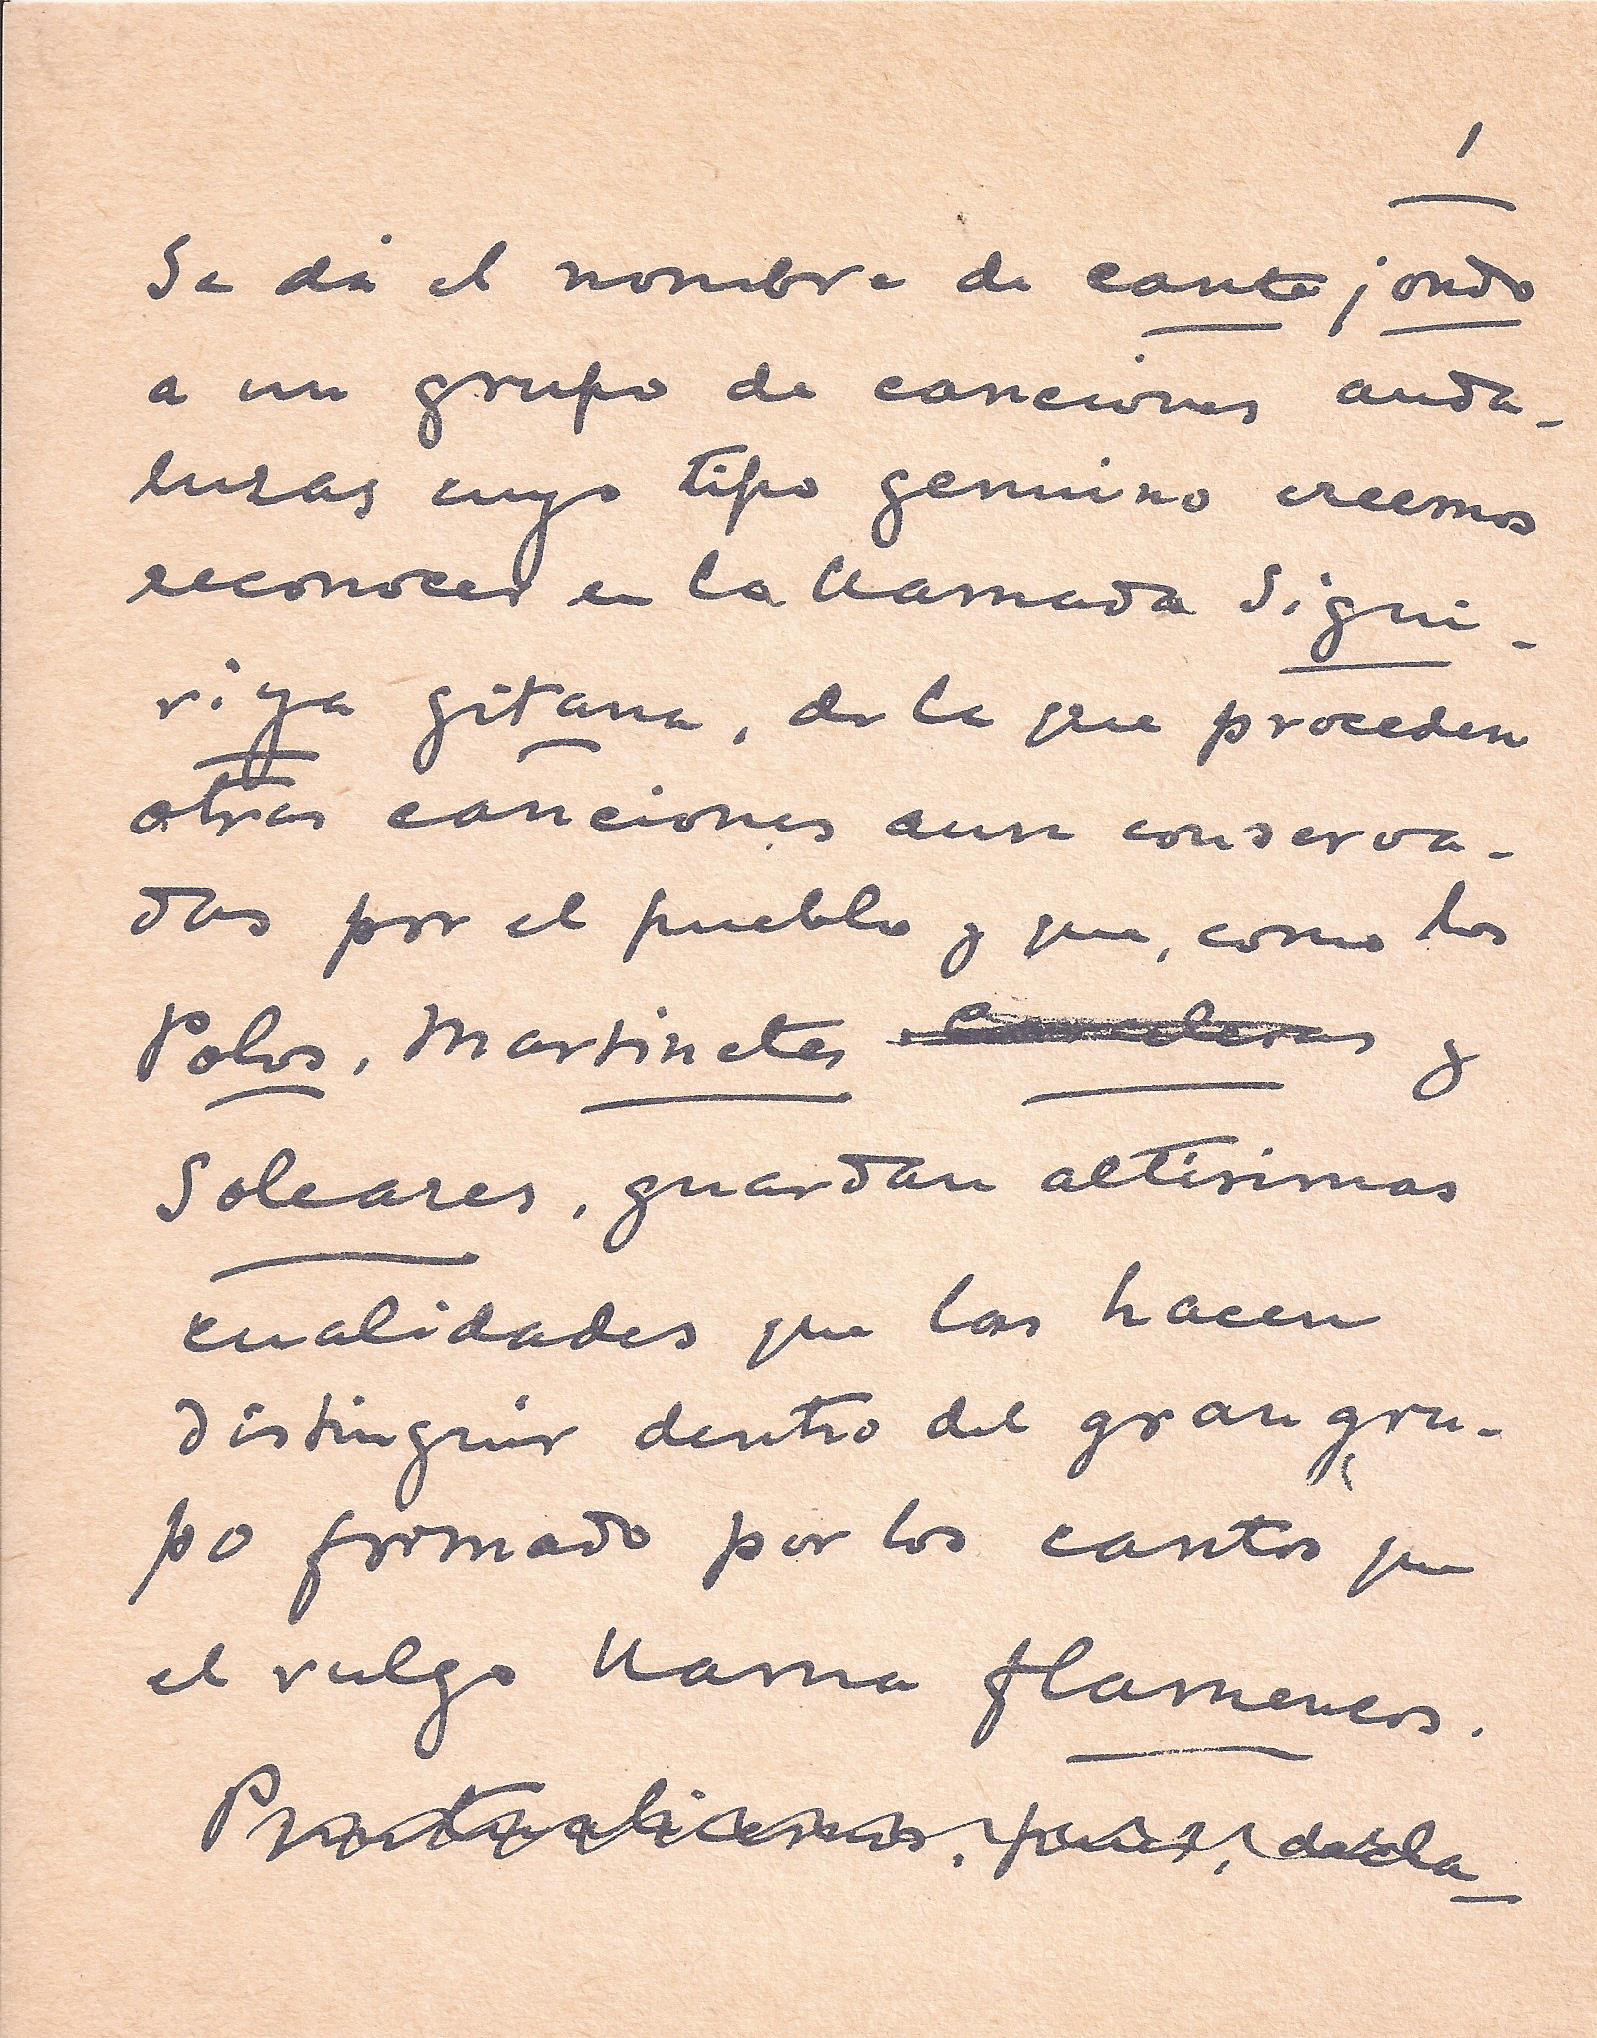 1
Se dá el nombre de cante jondo
a un grupo de canciones anda-
luzas cuyo tipo genuino creemos
reconocer en la llamada Sigui-
riya gitana, de la que proceden
otras canciones aun conserva-
das por el pueblo y que, como los
Polos, Martinetes y
Soleares, guardan altísimas
cualidades que las hacen
distinguir dentro del gran gru-
po formado por los cantos que
el vulgo llama flamencos.
pues,